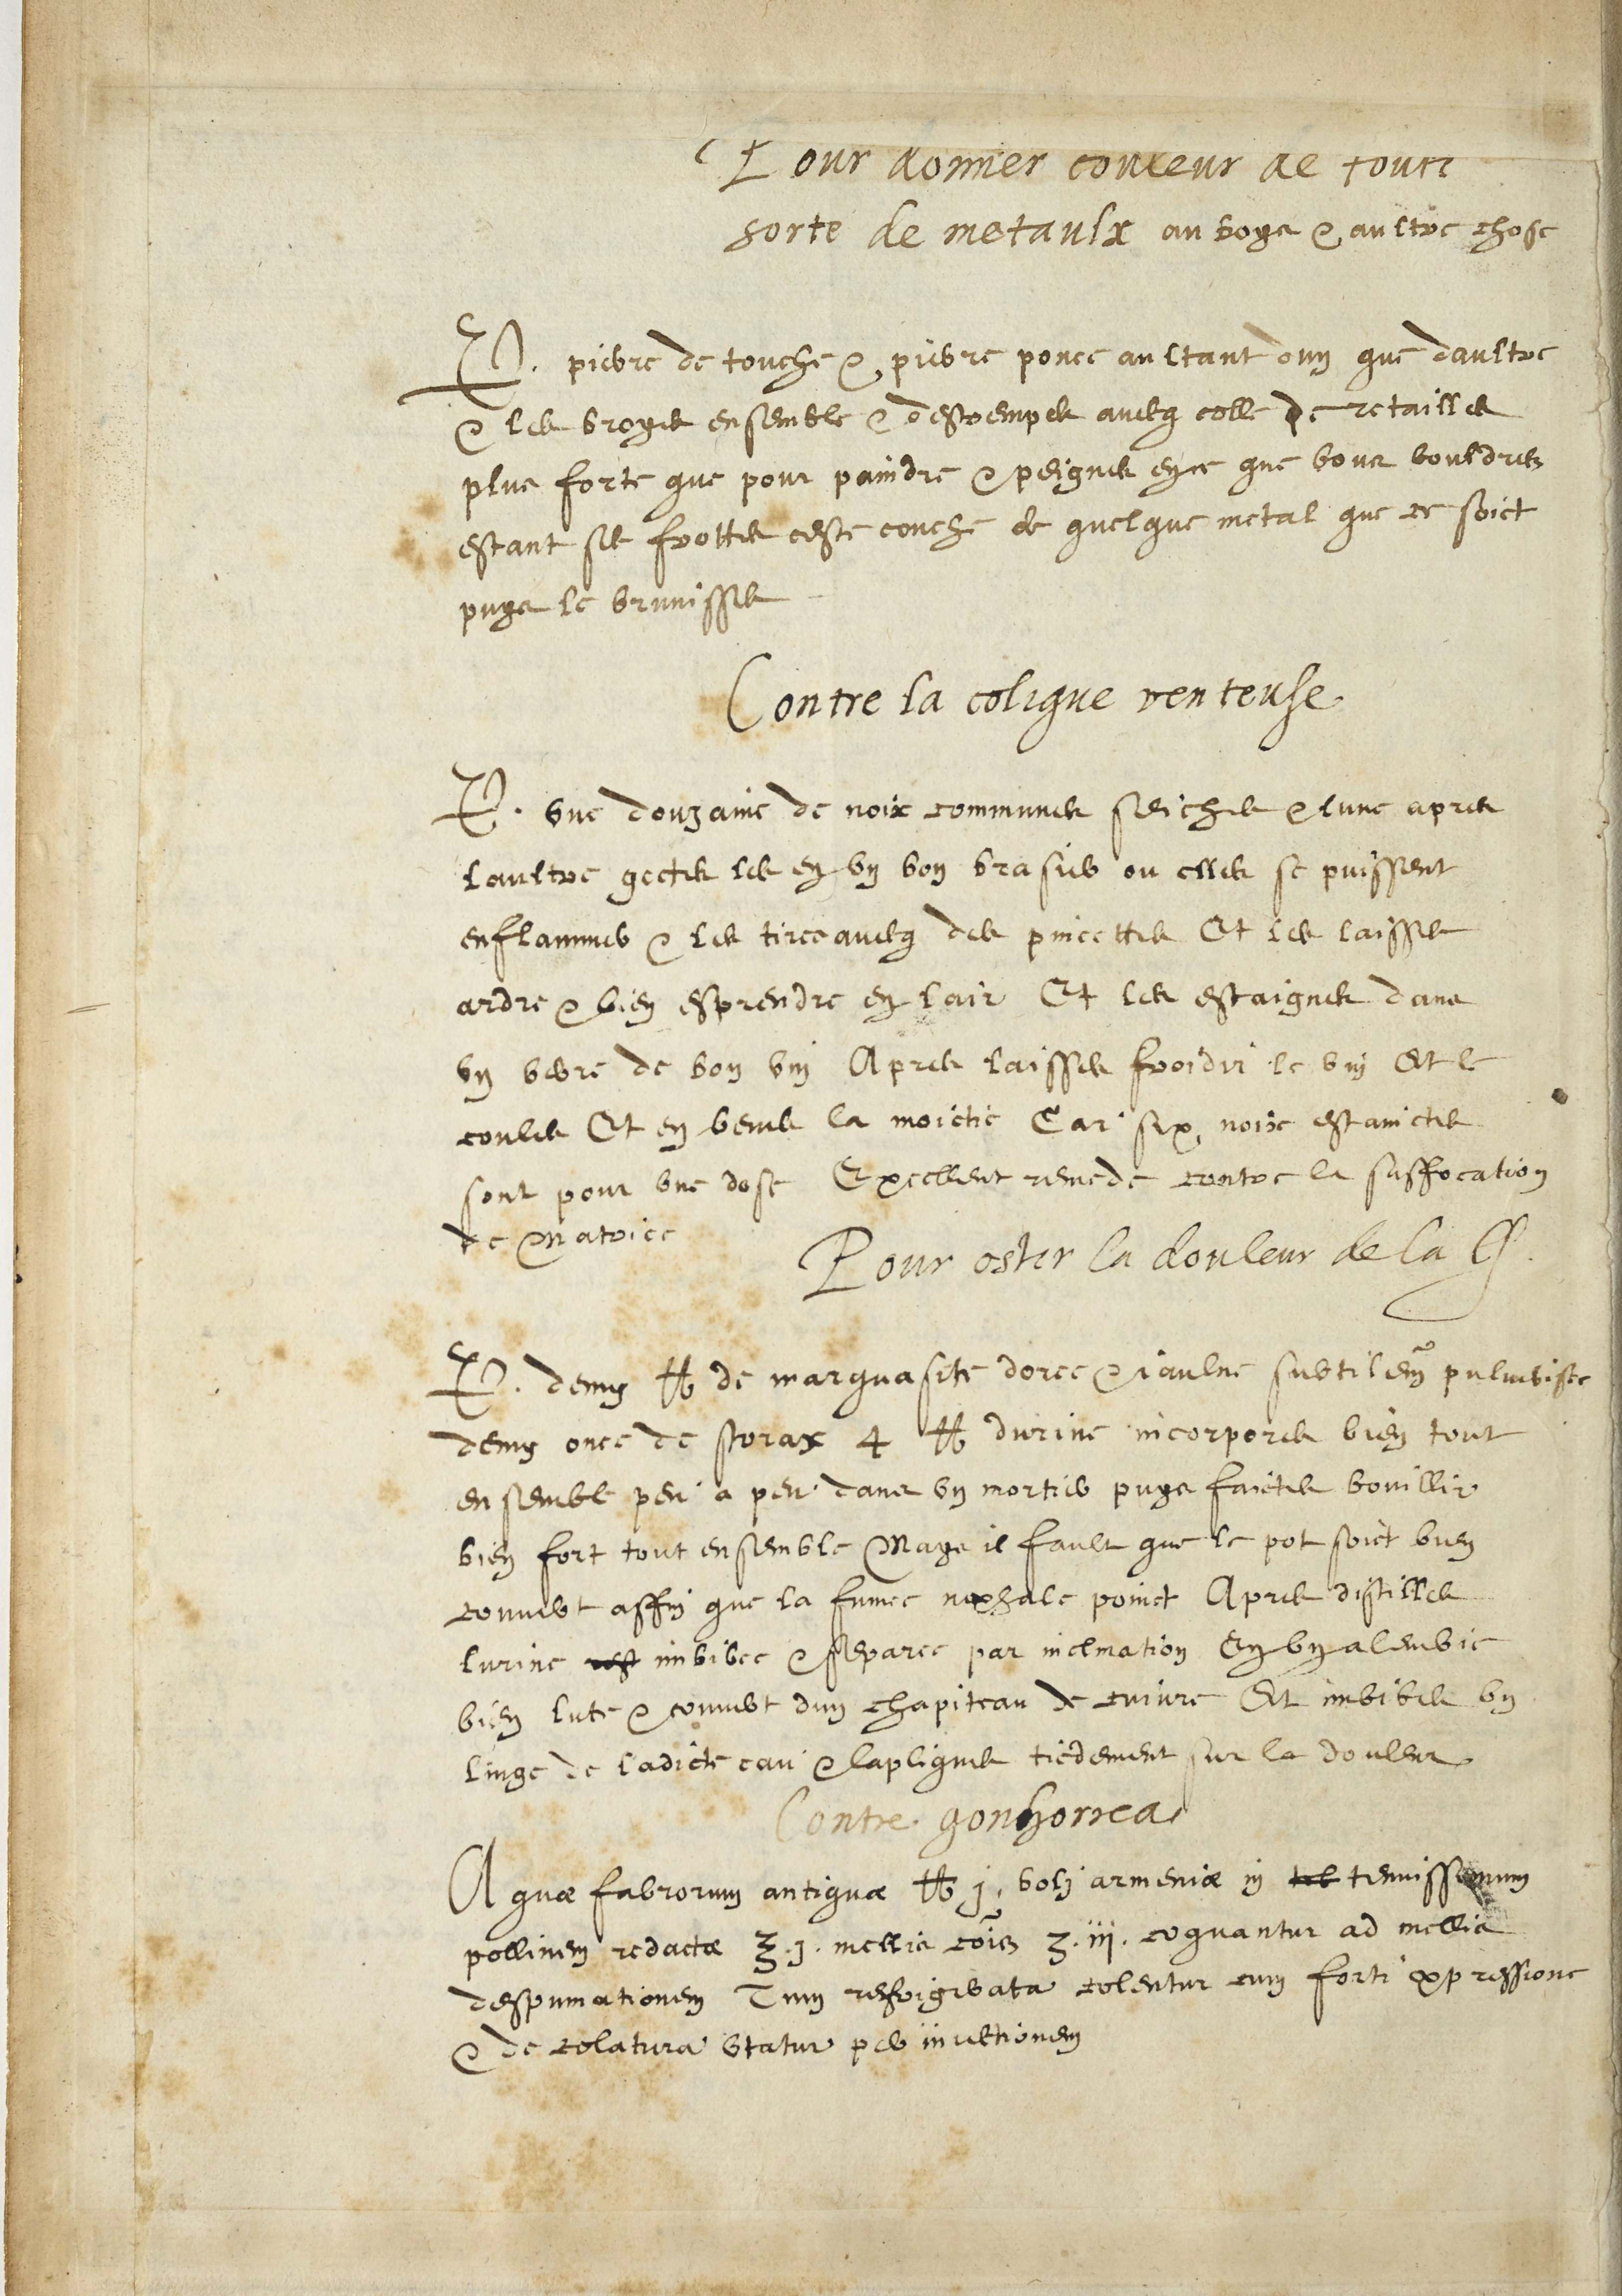 Pour donner couleur de toute
sorte de metaulx au boys & aultre chose
R. pierre de touche & pierre ponce aultant dun que daultre
& les broyes ensemble & destrempes avecq colle de retailles
plus forte que pour paindre & peignes en ce que vous vouldrez
estant sec frottes ceste couche de quelque metal que ce soict
puys le brunisses
Contre la colique venteuse
R. une douzaine de noix communes seiches & lune apres
laultre gectes les en vn bon brasier ou elles se puissent
enflammer & les tires avecq des pincettes Et les laisses
ardre & bien esprendre en lair Et les estaignes dans
vn verre de bon vin Apres laisses froidir le vin Et le
coules Et en beves la moictie Car six noix estainctes
sont pour vne dose Excellent remede contre la suffocation
de Matrice
Pour oster la douleur de la G.
R. demy ℔ de marquasite doree & iaulne subtilem̃ pulverisee
demy once de storax 4 ℔ durine incorpores bien tout
ensemble peu a peu dans vn mortier puys faictes bouillir
bien fort tout ensemble Mays il fault que le pot soict bien
couvert affin que la fumee nexhale poinct Apres distilles
lurine imbibee & separee par inclination En vn alembic
bien lute & couvert dun chapiteau de cuivre Et imbibes vn
linge de ladicte eau & lapliques tiedement sur la douleur
Contre gonhorrea
Aquæ fabrorum antiquæ ℔ j. bolj armeniæ in tenuissimum
pollinem redactæ ℥.j. mellis cõis ℥.iij. coquantur ad mellis
despumationem Tum refrigerata colentur cum forti expressione
& de colatura vtatur per iniectionem